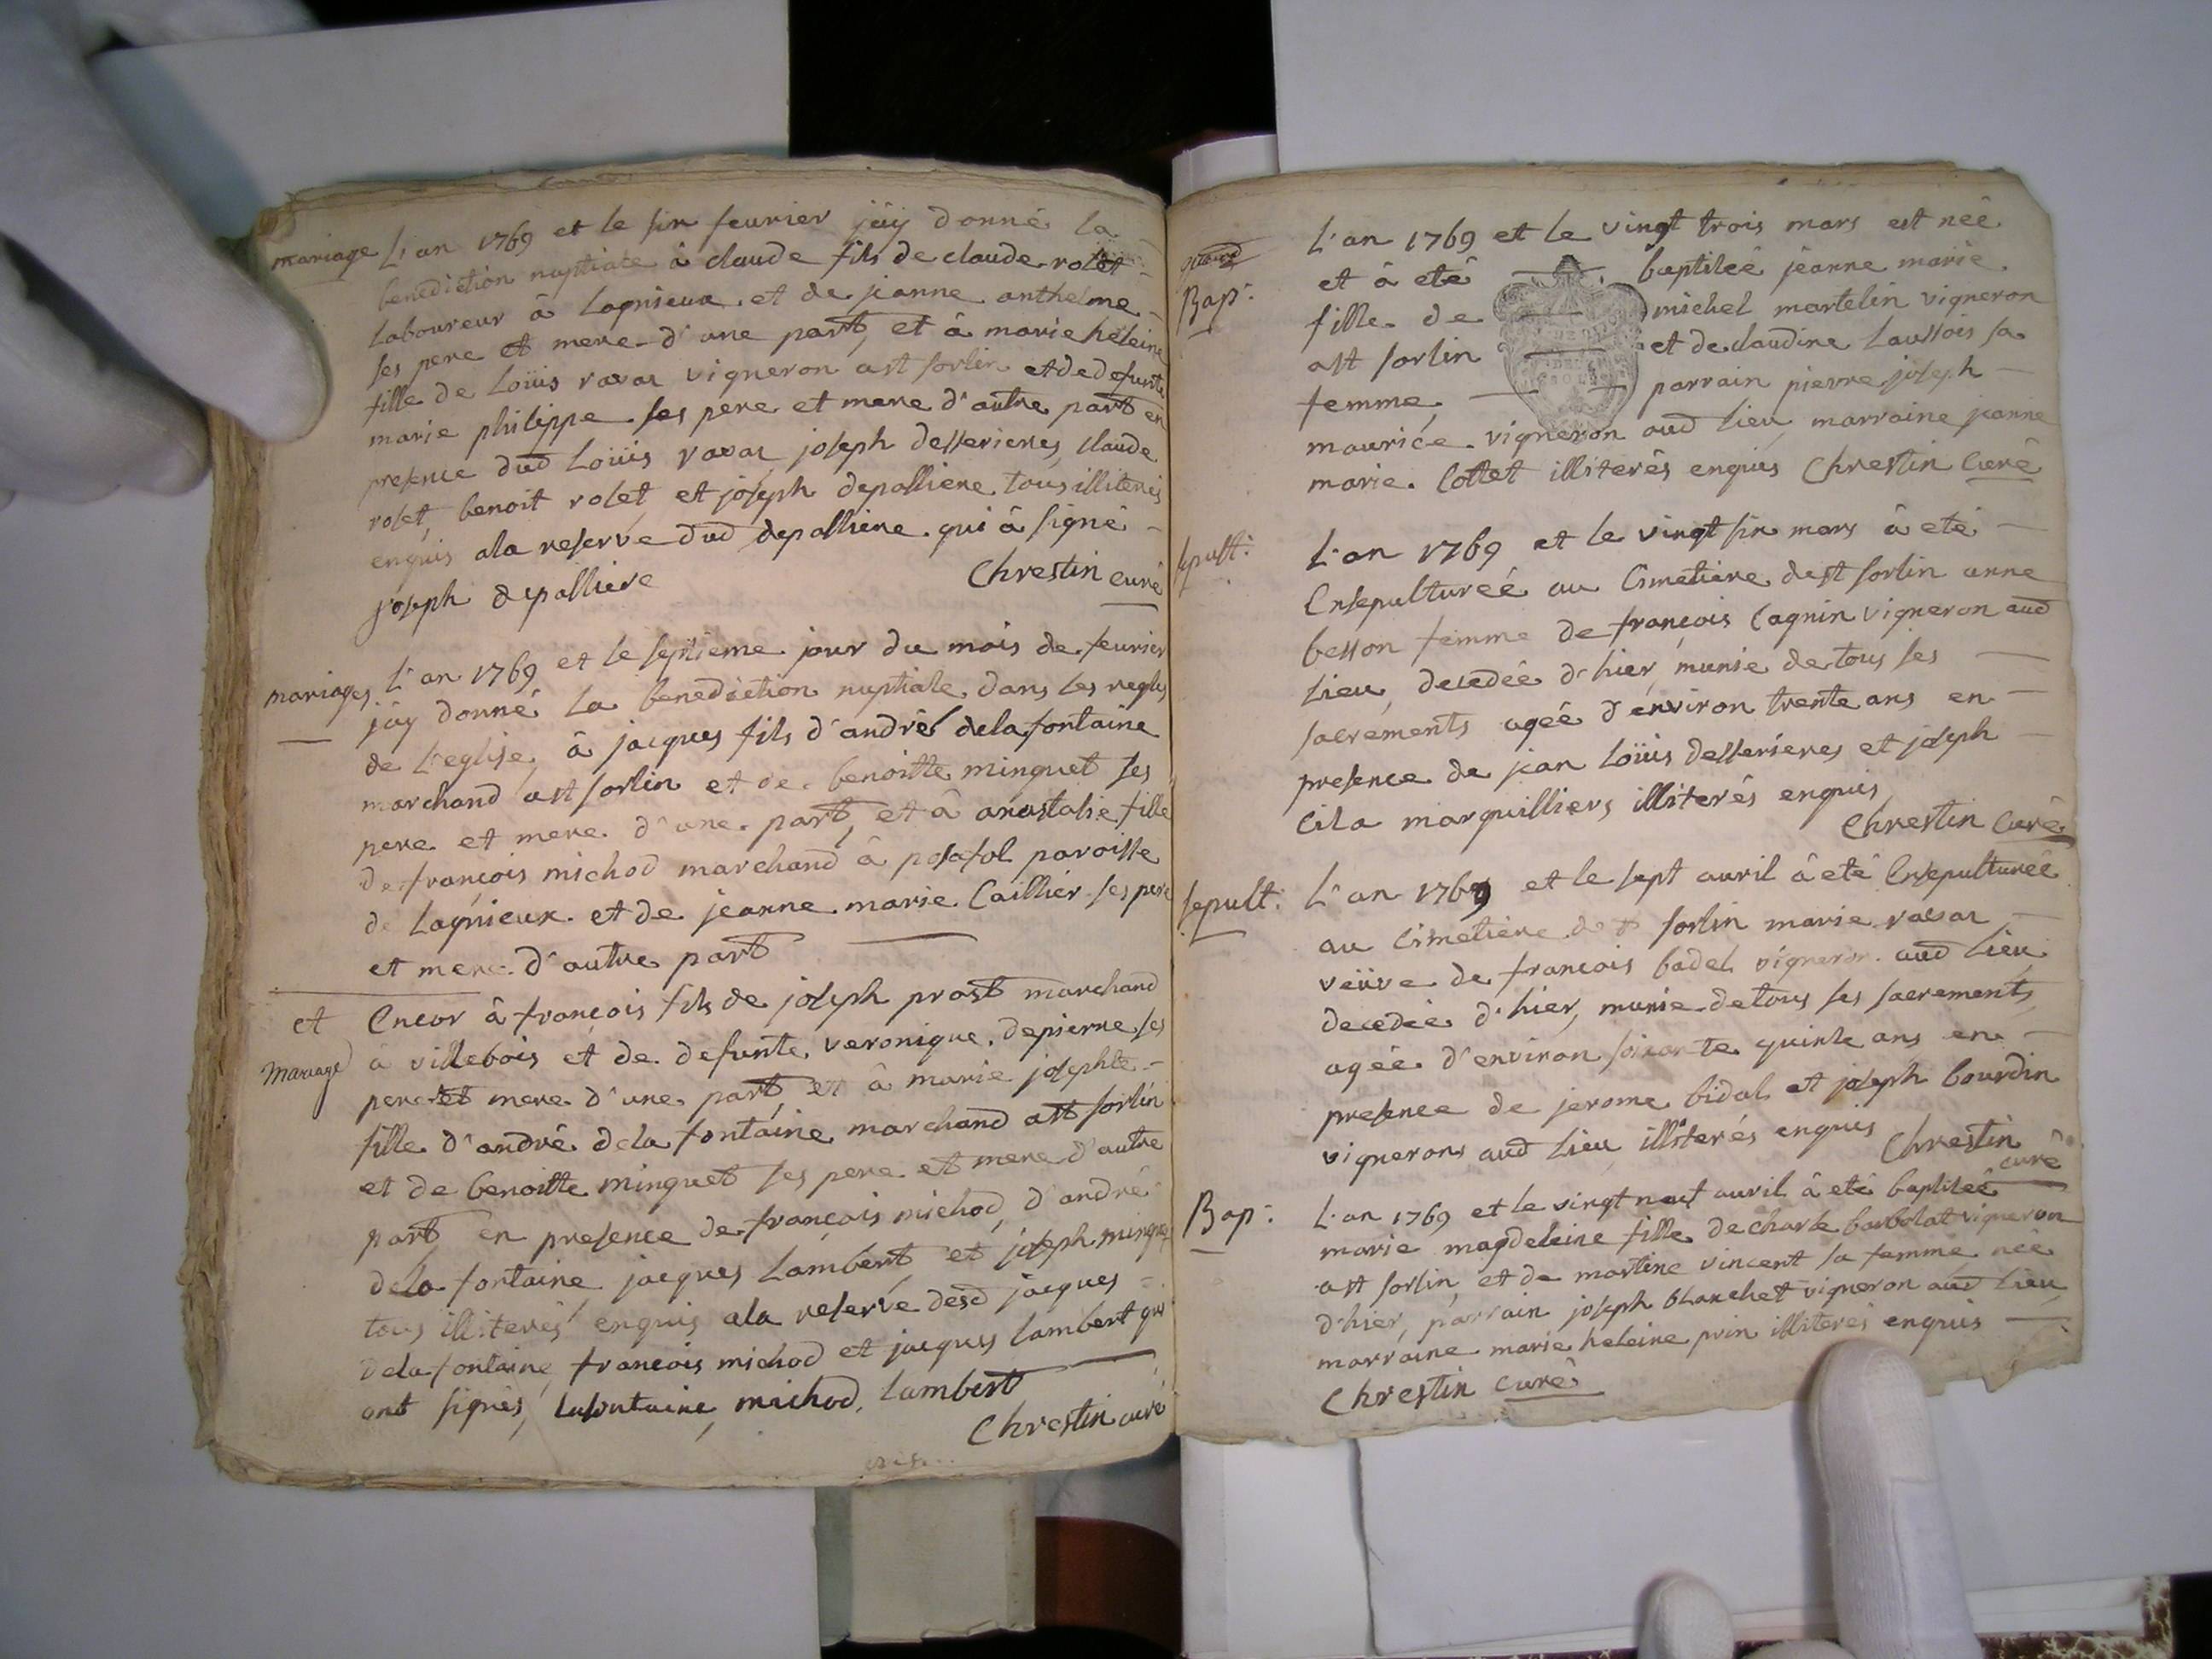 mariage L'an 1769 et le six feurier jäy donné la
benediction nuptiale à claude fils de claude rolet
laboureur à Lagnieux et de jeanne anthelme
ses pere et mere d'une part, et à marie heleine
fille de Loüis ravat vigneron a st sorlin et de defunte
marie philippe ses pere et mere d'autre part en
presence dud Loüis ravat joseph desserieres, claude
rolet, benoit rolet, et joseph depalliere tous illiterés
enquis ala reserve dud depalliere qui à signé
joseph depalliere Chrestin curé
mariages L'an 1769 et le septième jour du mois de feurier
jäy donné La benediction nuptiale dans les regles
de L'eglise, à jacques fils d'andré delafontaine
marchand a st sorlin et de benoitte minguet ses
pere et mere d'une part, et à anastasie fille
de françois michod marchand à posafol paroisse
de Lagnieux et de jeanne marie Caillier ses pere
et mere d'autre part
et Encor à françois fils de joseph prost marchand
Mariage à villebois et de defunte veronique depierre ses
pere et mere d'une part, et à marie josephte
fille d'andré dela fontaine marchand a st sorlin
et de benoitte minguet ses pere et mere d'autre
part en presence de françois michod, d'andré
dela fontaine jacques Lambert et joseph minguet
tous illiterés enquis ala reserve desd jacques
dela fontaine, françois michod et jacques lambert qui
ont signés, lafontaine, michod, lambert
Chrestin curé
L'an 1769 et le vingt trois mars est née
Bap: et à eté baptisée jeanne marie
fille de michel martelin vigneron
a st sorlin et de claudine Laussois sa
femme, parrain pierre joseph
maurice vigneron aud lieu, marraine jeanne
marie Cottet illiterés enquis Chrestin Curé
sepult: L'an 1769 et le vingt six mars à eté
Ensepulturée au Cimetiere de st sorlin anne
besson femme de françois Cagnin vigneron aud
Lieu, decedée d'hier, munie de tous ses
sacrements agée d'environ trente ans en
presence de jean Loüis desserieres et joseph
Cila marguilliers illiterés enquis
Chrestin Curé
sepult: L'an 1769 et le sept auril à eté Ensepulturée
au Cimetiere de st sorlin marie ravat
veüve de françois badel vigneron aud Lieu
decedée d'hier, munie de tous ses sacrements,
agée d'environ soixante quinze ans en
presence de jerome bidal et joseph bourdin
vignerons aud Lieu illiterés enquis Chrestin
curé
Bap: L'an 1769 et le vingt neuf auril à eté baptisée
marie magdeleine fille de charle barbolat vigneron
a st sorlin, et de martine vincent sa femme née
d'hier, parrain joseph blanchet vigneron aud Lieu
marraine marie heleine prin illiterés enquis
Chrestin Curé